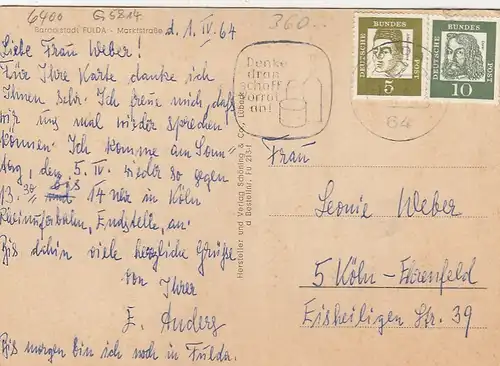 6400 G5814
360.-
Barockstadt FULDA - Marktstraße
d. 1. IV. 64
Liebe Frau Weber!
Für Ihre Karte danke ich
Ihnen sehr. Ich freue mich, daß
wir uns mal wieder sprechen
können. Ich komme am Sonn-
tag, den 5. IV. wieder so gegen
13.30 bis 14 Uhr in Köln
Endstelle, an.
Bis dahin viele herzliche Grüße
von Ihrer
E. Anders
Bis morgen bin ich noch in Fulda.
Hersteller und Verlag Schöning & Co., Lübeck
Bestellnr. Fu
Denke
dran
schaff
Vorrat
an!
DEUTSCHE BUNDESPOST
5
DEUTSCHE BUNDESPOST
10
64
Frau
Leonie Weber
5 Köln-Ehrenfeld
Eisheiligen Str. 39